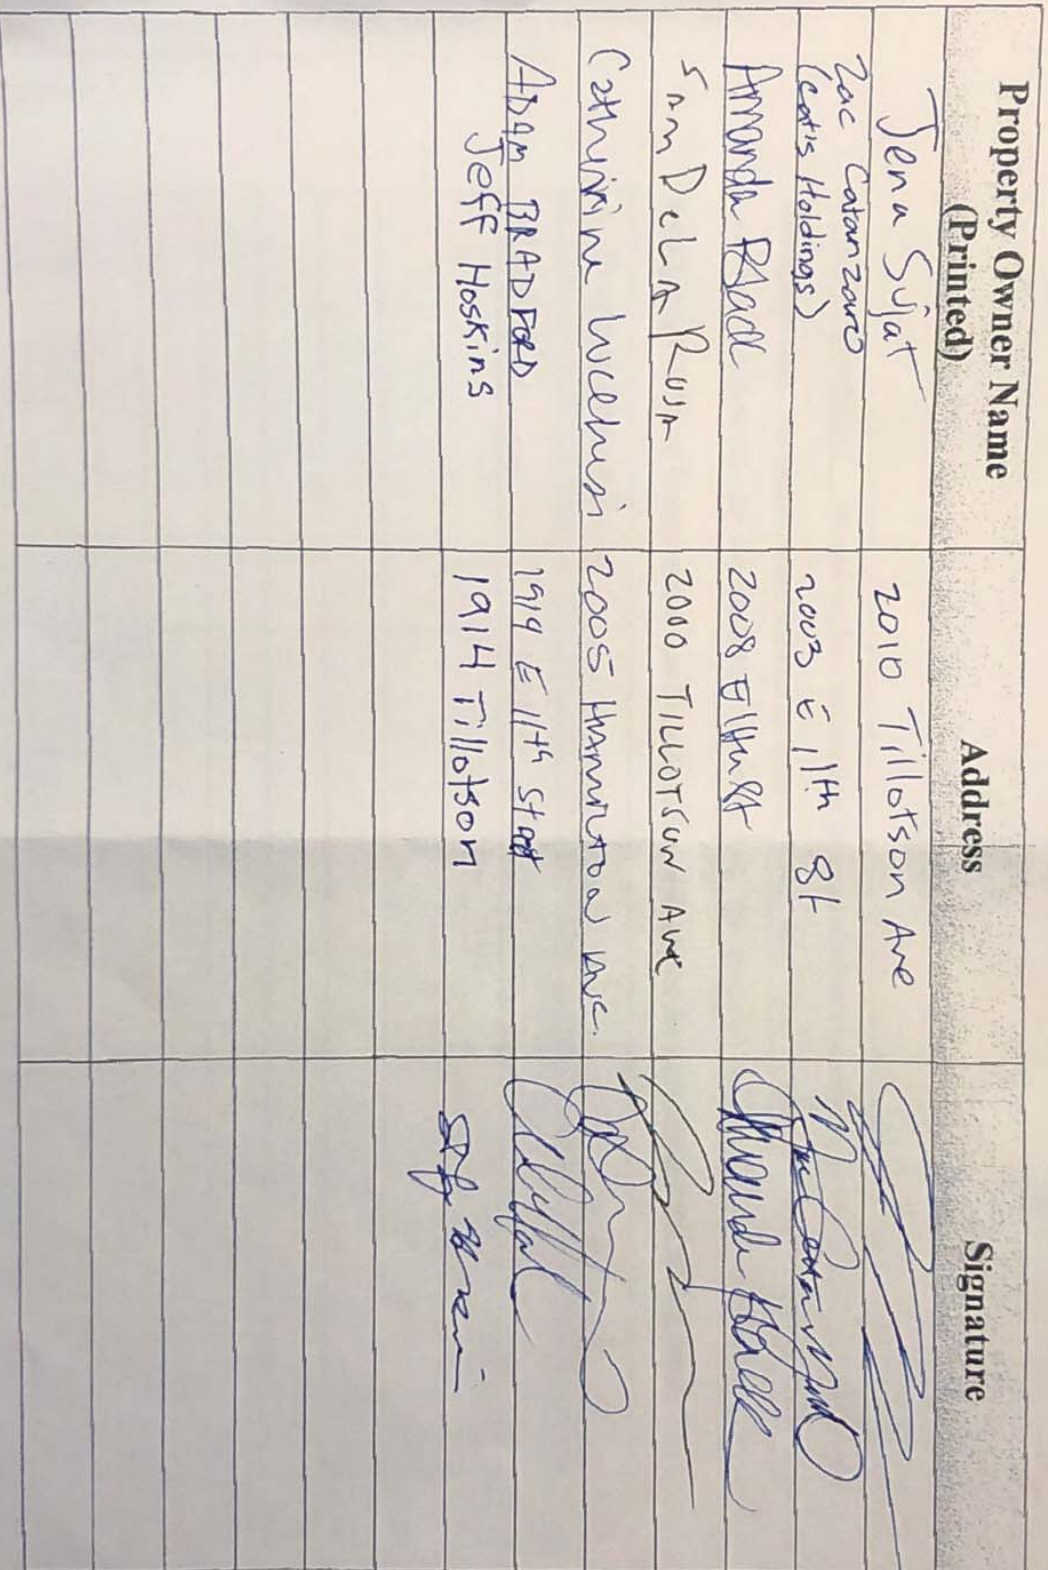 Property Owner Name (Printed) Address Signature
Jena Sujat 2010 Tillotson Ave
Zac Catanzaro
(Cat's Holdings) 2003 E 11th St
Amanda Black 2008 E 11th St
Sam DeLA Rosa 2000 TILLOTSON Ave
Catherine Lucchesi 2005 HAMILTON Ave.
ADAM BRADFORD 1919 E 11th Street
Jeff Hoskins 1914 Tillotson